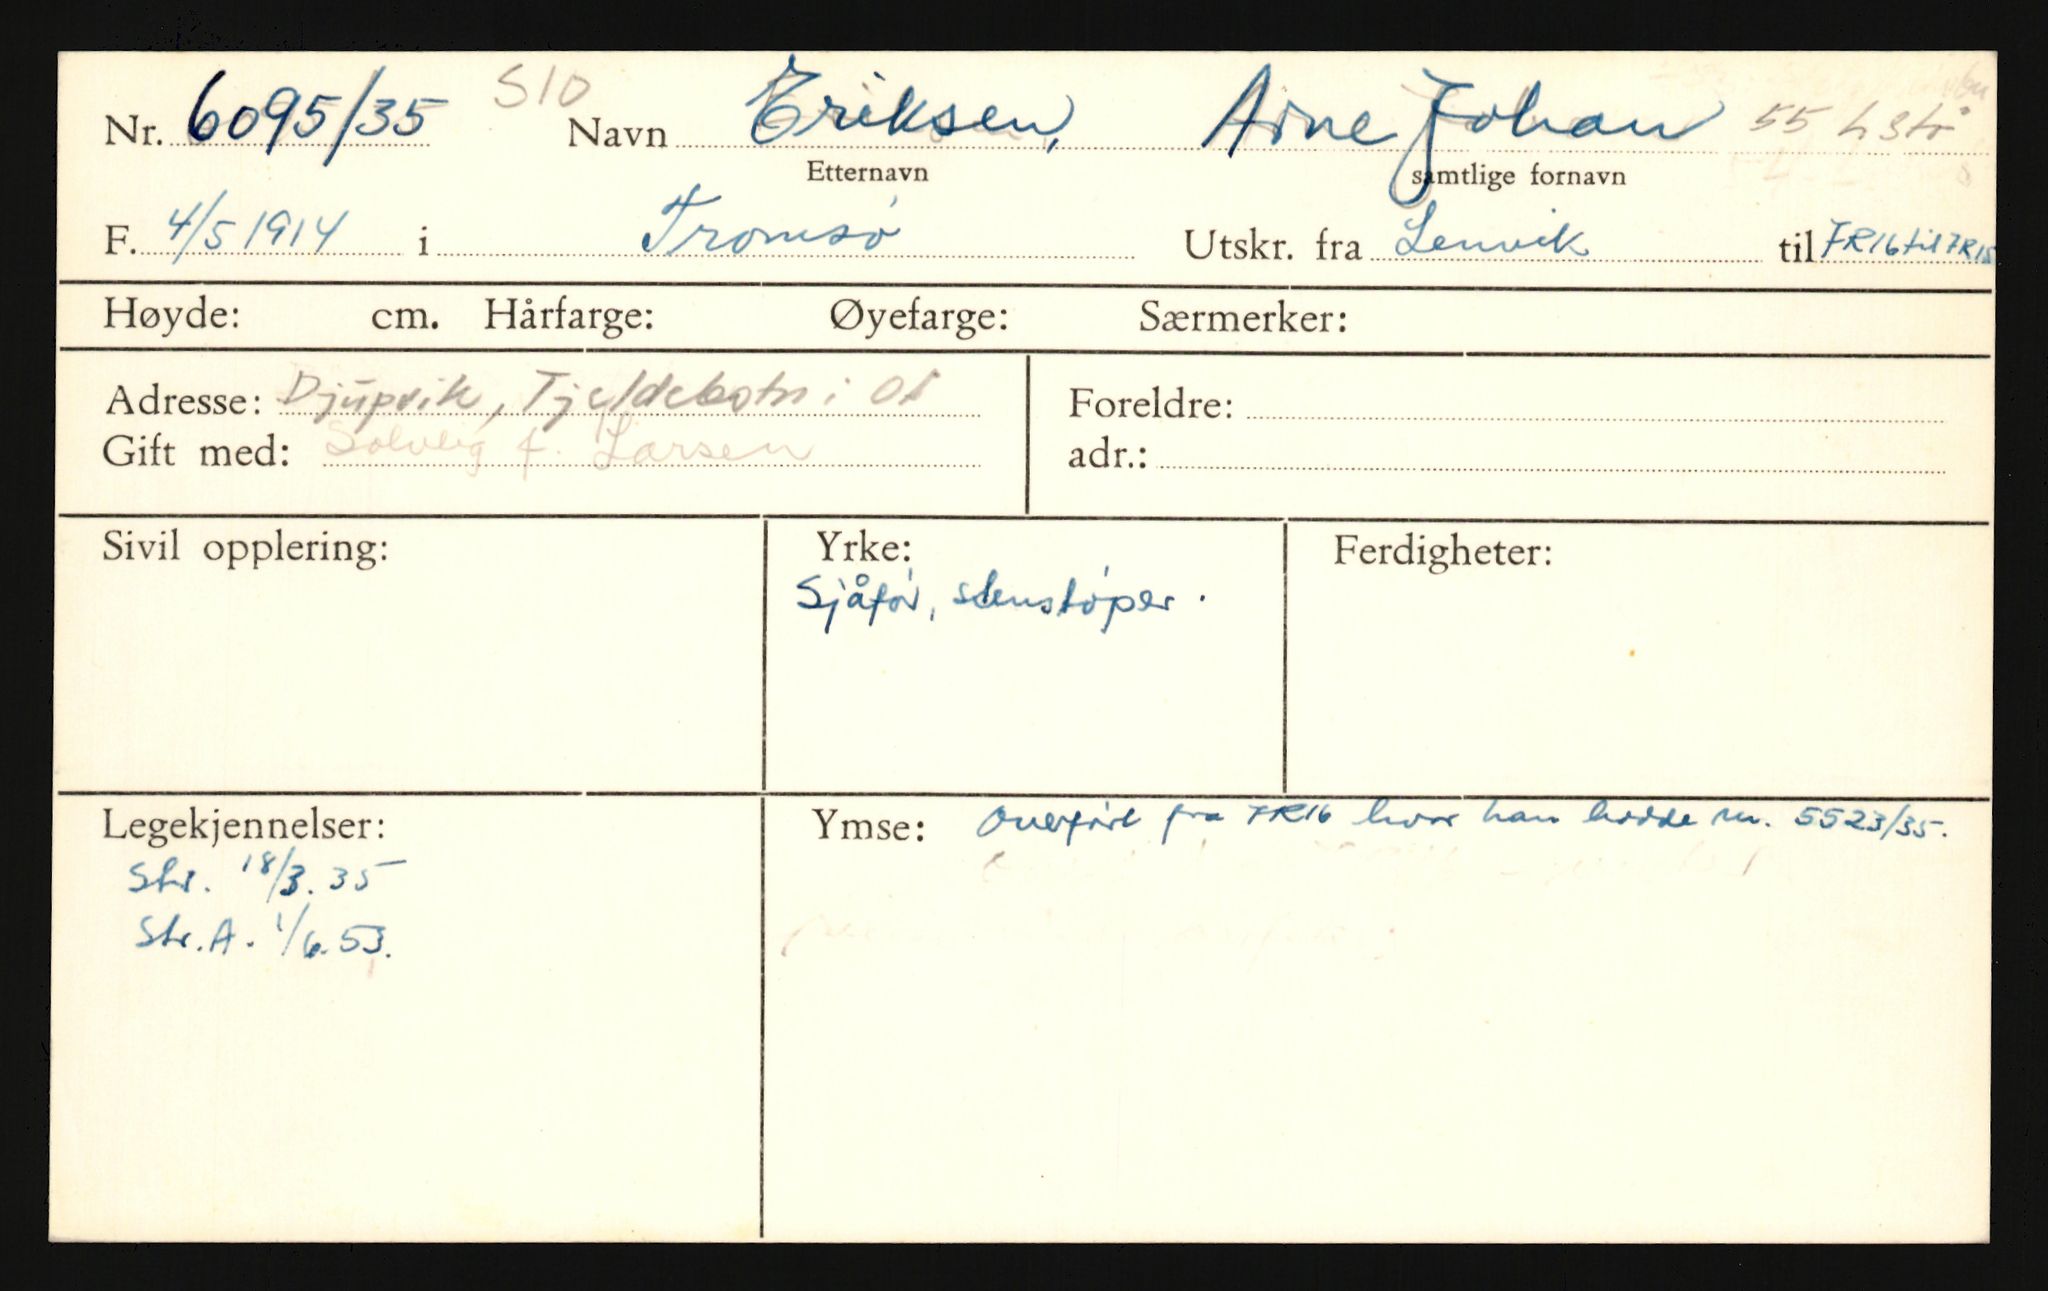 Nr. 6095/35 S10 Navn Eriksen, Arne Johan 55
Etternavn samtlige fornavn
F. 4/5 1914 i Tromsø Utskr. fra Lenvik til FR16 til FR15
Høyde: cm. Hårfarge: Øyefarge: Særmerker:
Adresse: Djupvik, Tjeldebotn i Of
Foreldre:
Gift med: Solveig f. Larsen
adr.:
Sivil opplering:
Yrke:
Ferdigheter:
Sjåfør, stenstøper.
Legekjennelser:
Ymse: Overført fra FR16 hvor han hadde nr. 5523/35.
Str. 18/3.35
Str.A. 1/6.53.